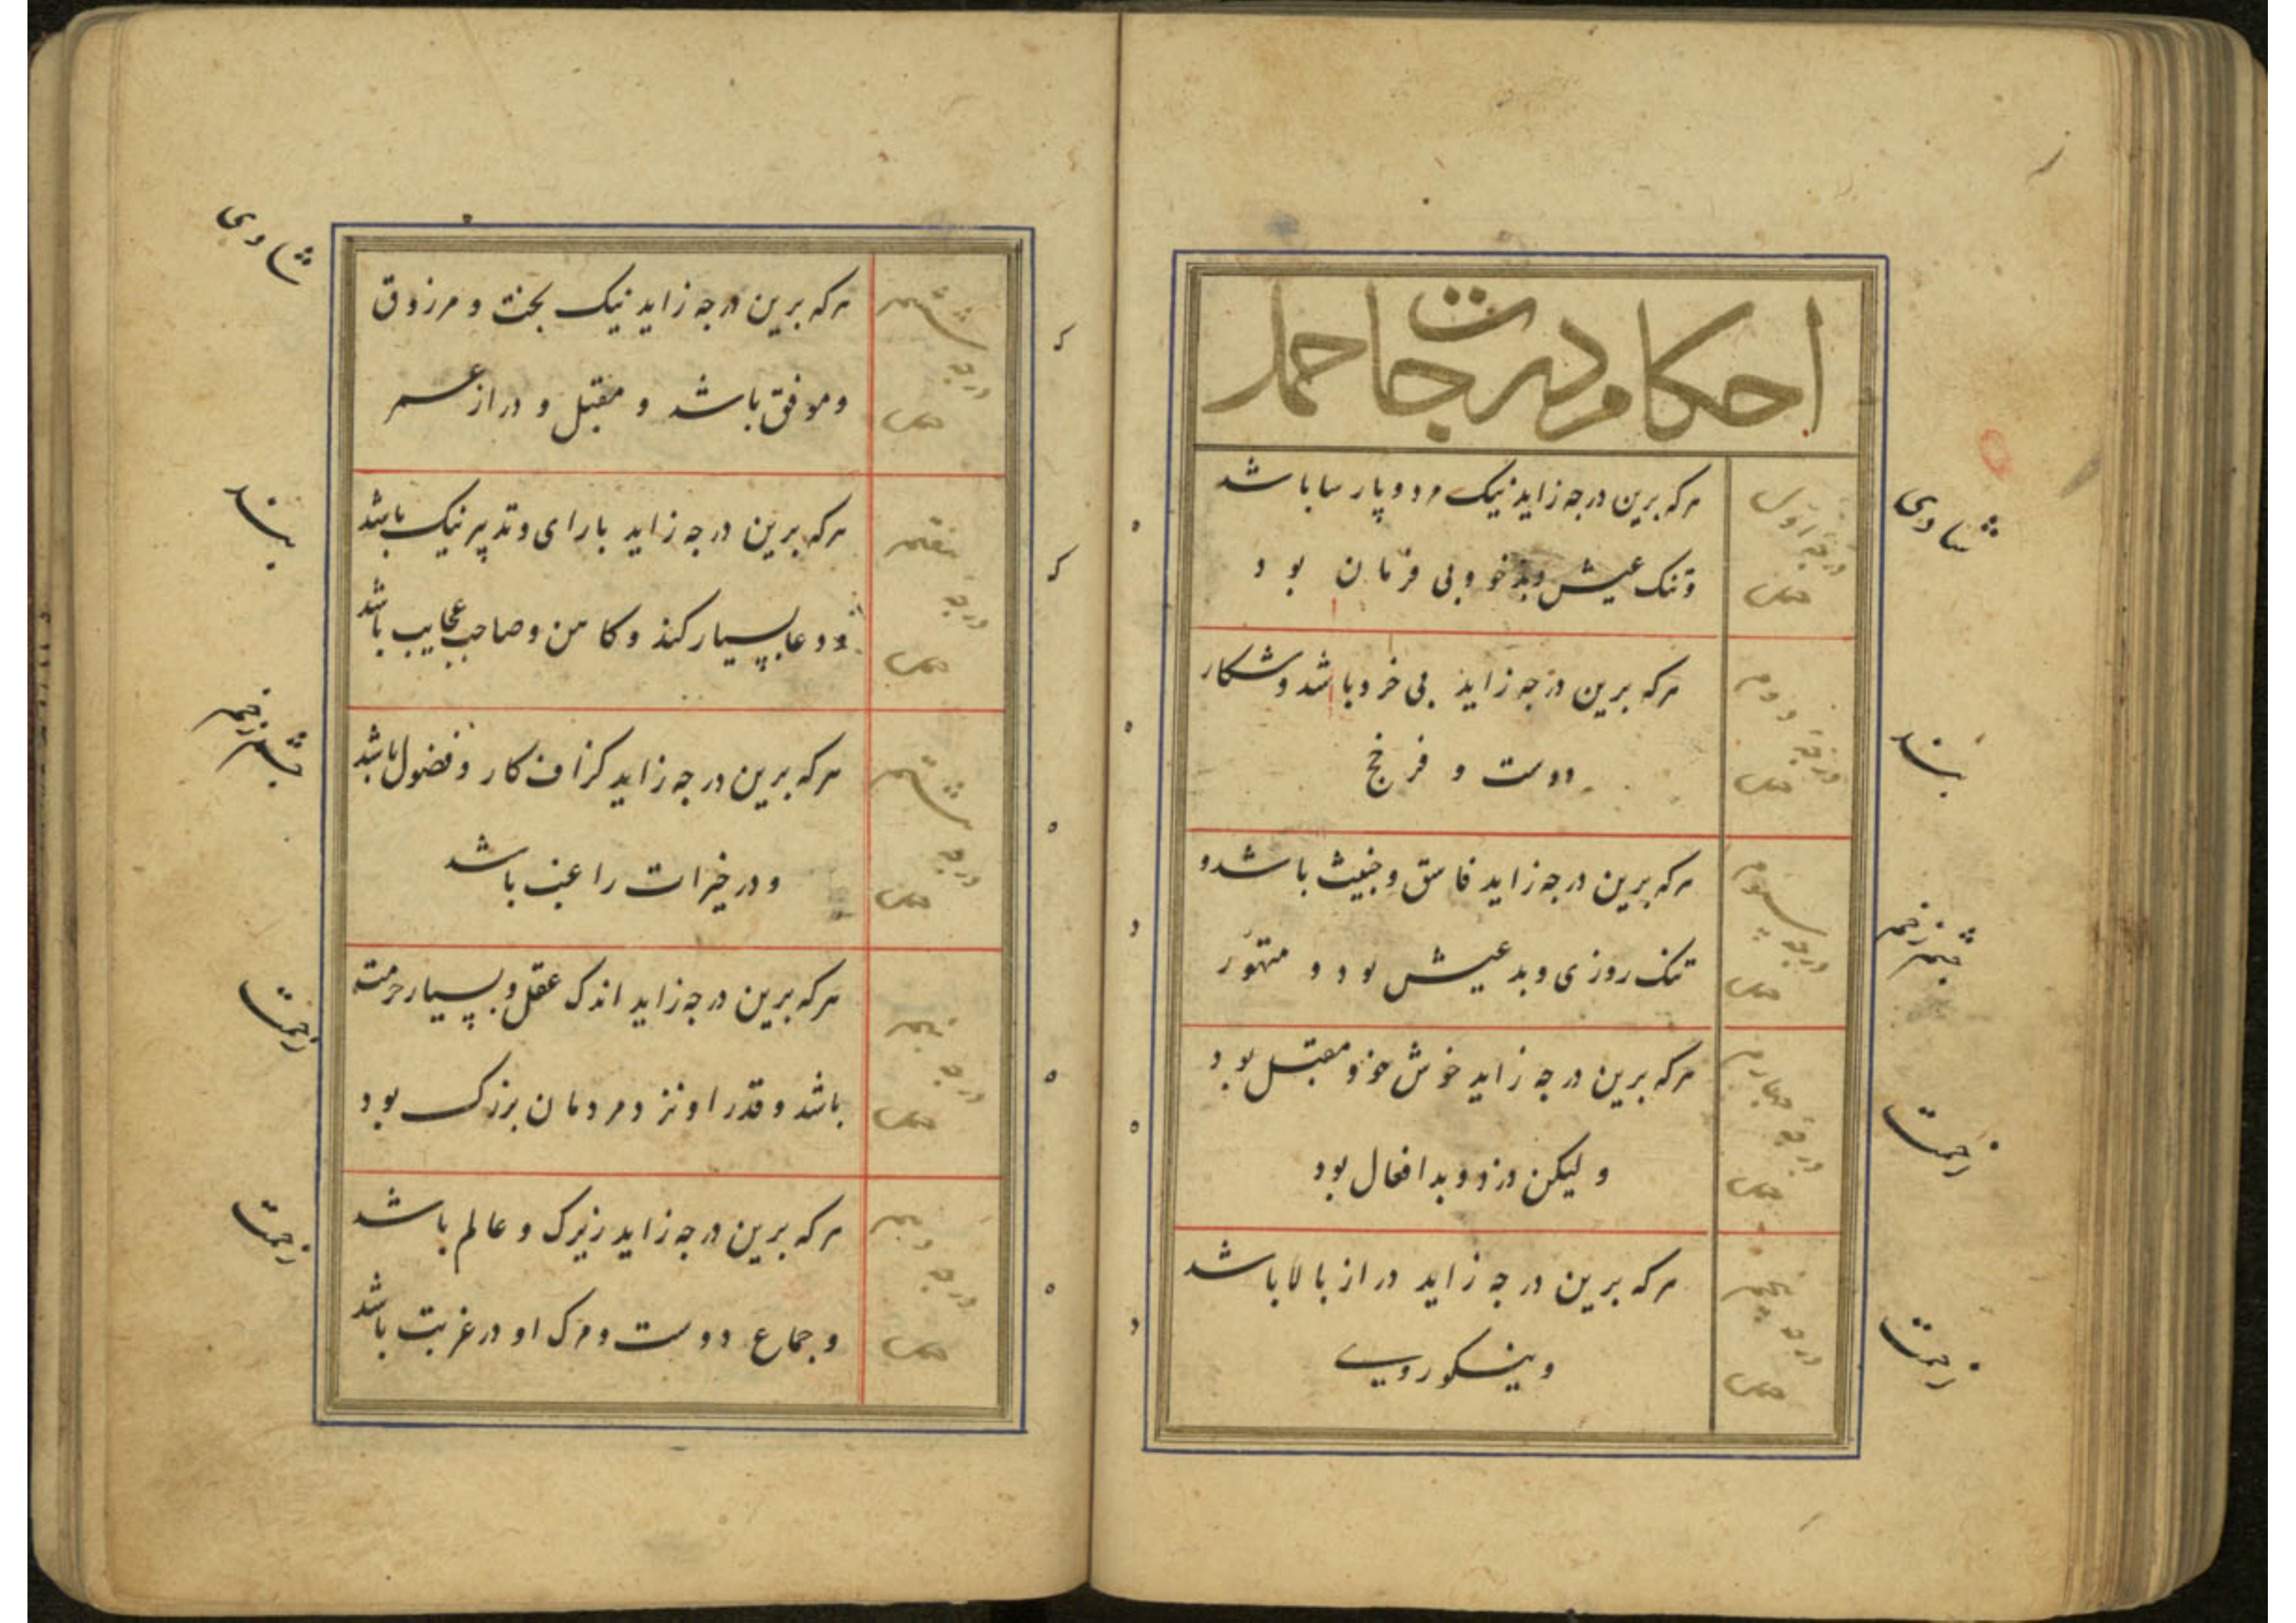 احکام درجات حمل
درجه اول
حمل
هرکه برین درجه زاید نیک مرد و پارسا باشد
و تنک عیش و بدخو و بی فرمان بود
شادی
درجه دوم
حمل
هرکه برین درجه زاید بی خرد باشد و شکار
دوست و فرخ
درجه سوم
حمل
هرکه برین درجه زاید فاسق و خبیث باشد و
تنک روزی و بد عیش بود و متهور
چشم زخم
درجه چهارم
حمل
هرکه برین درجه زاید خوش خو و مقبل بود
و لیکن دزد و بد افعال بود
زحمت
درجه پنجم
حمل
هرکه برین درجه زاید دراز بالا باشد
و نیکو روی
زحمت
ششم
درجه
حمل
هرکه برین درجه زاید نیک بخت و مرزوق
و موفق باشد و مقبل و دراز عمر
شادی
هفتم
درجه
حمل
هرکه برین درجه زاید با رای و تدبیر نیک باشد
و دعا بسیار کند و کاهن و صاحب عجایب باشد
هشتم
درجه
حمل
هرکه برین درجه زاید کزاف کار و فضول باشد
و در خیرات راغب باشد
چشم زخم
نهم
درجه
حمل
هرکه برین درجه زاید اندک عقل و بسیار حرمت
باشد و قدر او نزد مردمان بزرک بود
زحمت
دهم
درجه
حمل
هرکه برین درجه زاید زیرک و عالم باشد
و جماع دوست و مرک او در غربت باشد
زحمت